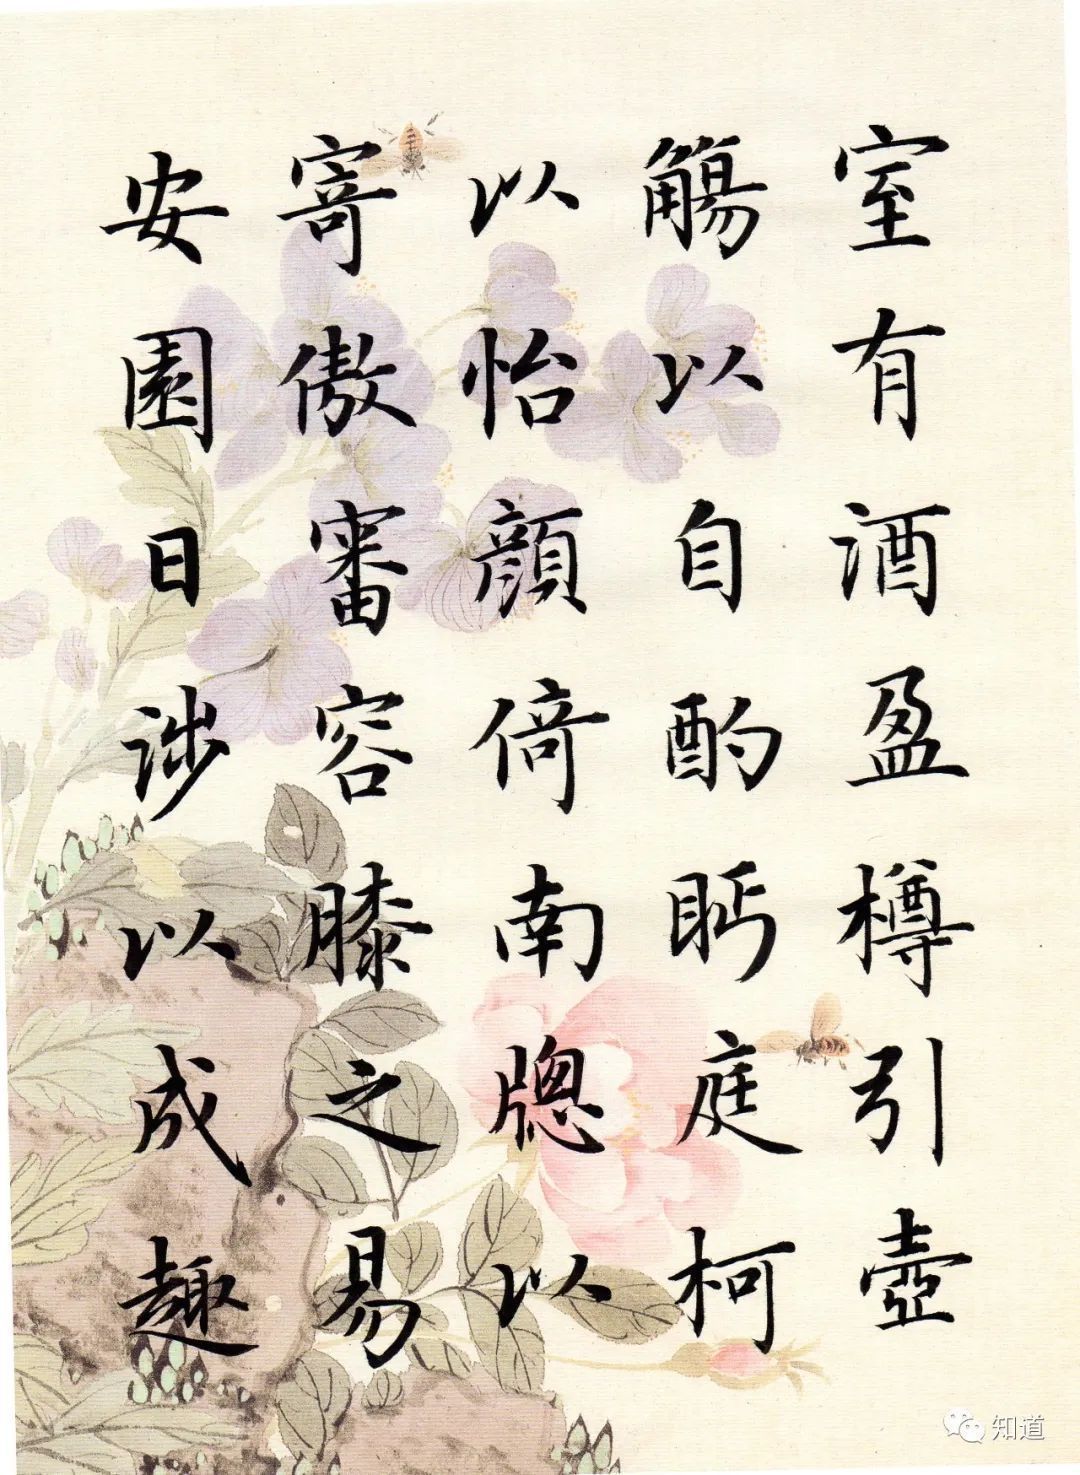 室有酒盈樽引壺
觴以自酌眄庭柯
以怡顔倚南牕以
寄傲審容膝之易
安園日涉以成趣
知道